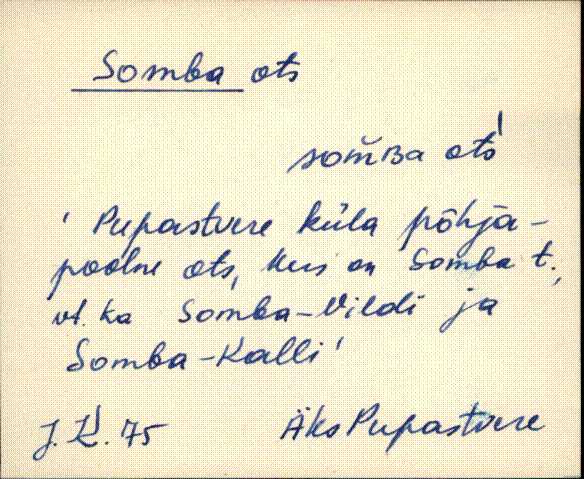 Somba ots
som̆ʙa ots'
' Pupastvere küla põhja-
poolne ots, kus on Somba t.,
vt. ka Somba-Vildi ja
Somba-Kalli '
J. K. 75 Äks Pupastvere